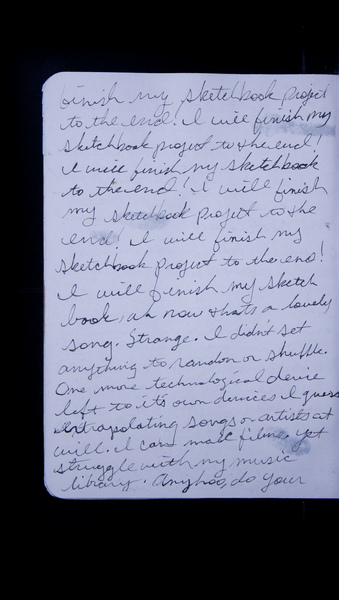 finish my sketchbook project
to the end! I will finish my
sketchbook project to the end!
I will finish my sketchbook
to the end! I will finish
my sketchbook project to the
end! I will finish my
sketchbook project to the end!
I will finish my sketch
book, ah now thats a lovely
song. Strange. I didn't set
anything to random or shuffle.
One more technological device
left to its own devices I guess
extrapolating songs or artists at
will. I can make films, yet
struggle with my music
library. Anyhoo, do your